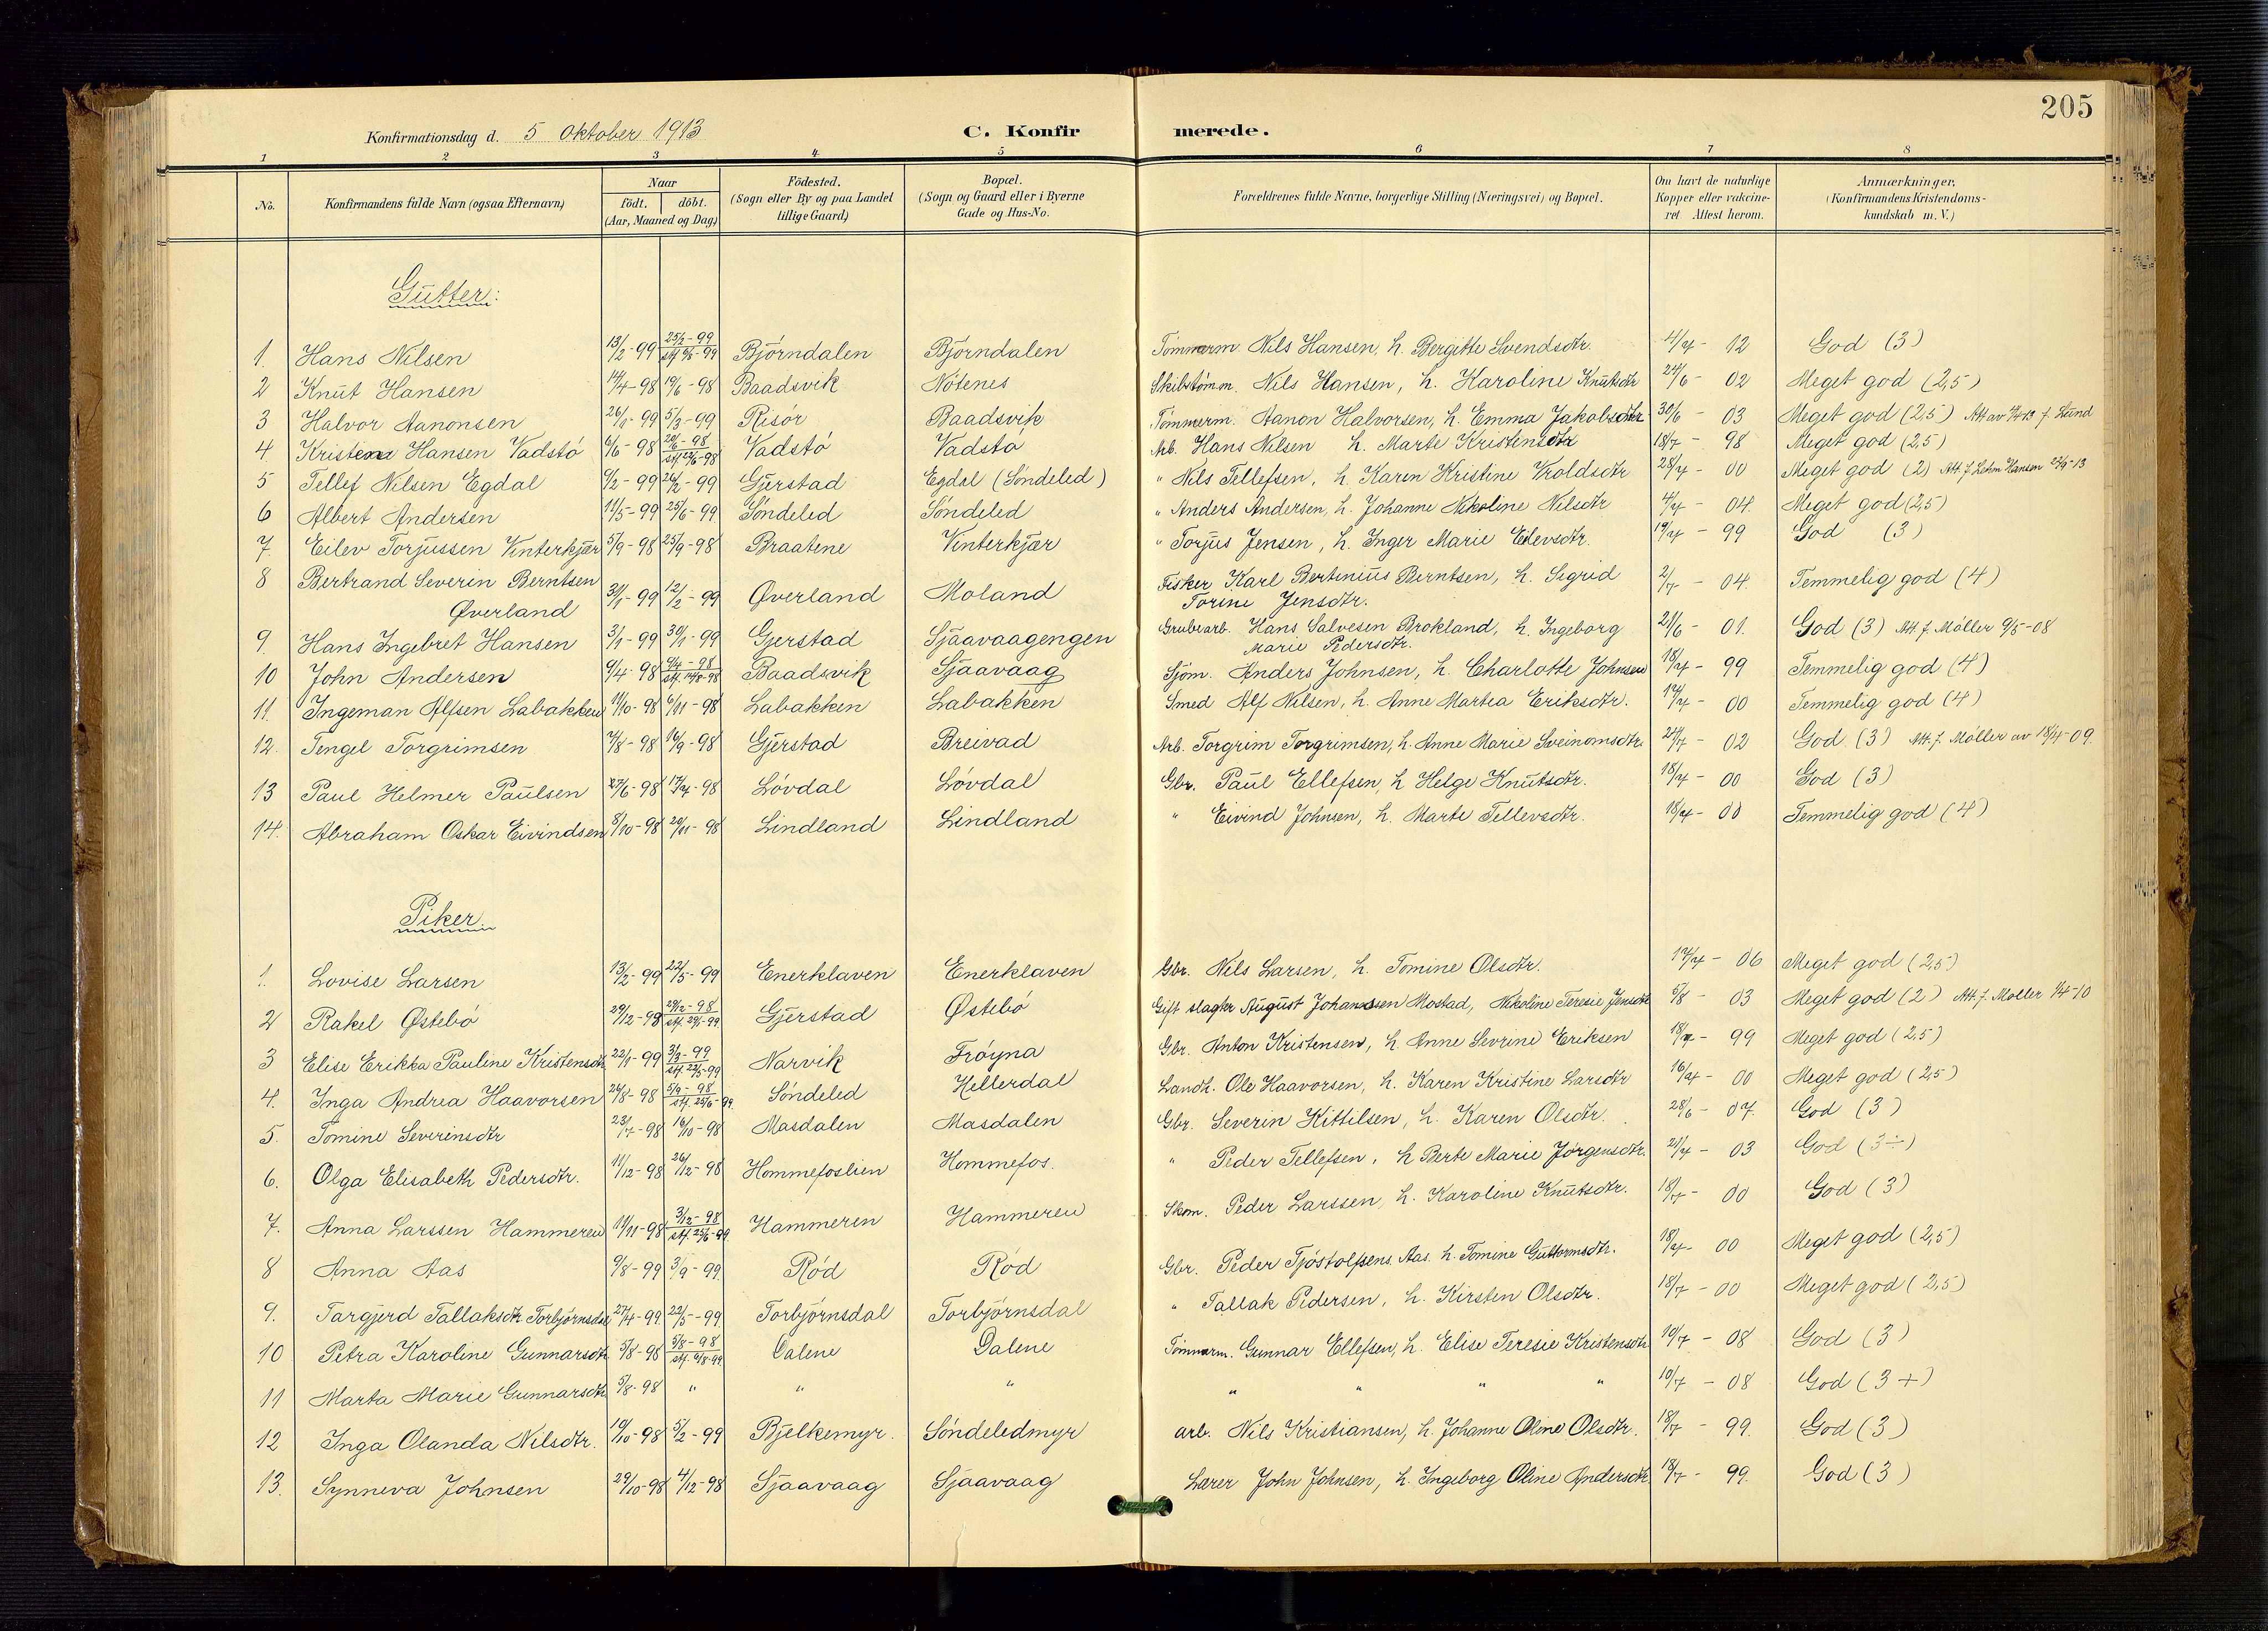 205
Konfirmationsdag d. 5 Oktober 1913 C. Konfirmerede.
1 2 3 4 5 6 7 8
No. Konfirmandens fulde Navn (ogsaa Efternavn) Naar födt. döbt. (Aar, Maaned og Dag) Födested. (Sogn eller By og paa Landet tillige Gaard) Bopæl. (Sogn og Gaard eller i Byerne Gade og Hus-No. Forældrenes fulde Navne, borgerlige Stilling (Næringsvei) og Bopæl. Om havt de naturlige Kopper eller vakcineret. Attest herom. Anmærkninger. (Konfirmandens Kristendomskundskab m. V.)
Gutter:
1. Hans Nilsen 13/2-99 25/2-99 Björndalen Björndalen Tømmerm. Nils Hansen, h. Bergitte Svendsdtr. 4/7-12 God (3)
2 Knut Hansen 14/4-98 19/6-98 Baadsvik Nötenes Skibstömm. Nils Hansen, h. Karoline Knutsdtr 24/6-02 Meget god (2,5)
3 Halvor Aanonsen 26/1-99 5/3-99 Risör Baadsvik Tömmerm. Aanon Halvorsen, h. Emma Jakobsdtr 30/6-03 Meget god (2,5)
4 Kristen Hansen Vadstö 6/6-98 Vadstö Vadstö Arb. Hans Nilsen h. Marte Kristensdtr 18/7-98 Meget god (2,5)
5 Tellef Nilsen Egdal 6/2-99 26/2-99 Gjerstad Egdal (Söndeled) " Nils Tellefsen, h. Karen Kristine Kroldsdtr 28/7-00 Meget god (2)
6 Albert Andersen 11/5-99 25/6-99 Söndeled Söndeled " Anders Andersen, h. Johanne Nikoline Nilsdtr 4/7-04. Meget god (2,5)
7. Eilev Torjussen Vinterkjær 5/9-98 25/9-98 Braatene Vinterkjær " Torjus Jensen, h. Inger Marie Eilevsdtr. 19/7-99 God (3)
8 Bertrand Severin Berntsen Øverland 31/1-99 12/2-99 Øverland Moland Fisker Karl Bertinius Berntsen, h. Sigrid Torine Jensdtr. 2/7-04. Temmelig god (4)
9. Hans Ingebret Hansen 3/1-99 30/1-99 Gjerstad Sjaavaagengen Grubearb. Hans Salvesen Brokland, h. Ingeborg Marie Pedersdtr. 21/6-01. God (3) Att. f. Möller 9/5-08
10 John Andersen 6/4-98 Baadsvik Sjaavaag Sjöm. Anders Johnsen, h. Charlotte Johnsen 18/7-99 Temmelig god (4)
11. Ingeman Alfsen Labakken 11/10-98 6/11-98 Labakken Labakken Smed Alf Nilsen, h. Anne Martea Eriksdtr. 14/7-00 Temmelig god (4)
12. Tengel Torgrimsen 7/8-98 16/9-98 Gjerstad Breivad Arb. Torgrim Torgrimsen, h. Anne Marie Sveinomsdtr. 24/7-02 God (3) Att. f. Möller av 18/4-09.
13 Paul Helmer Paulsen 27/6-98 17/7-98 Lövdal Lövdal Gbr. Paul Ellefsen, h Helge Knutsdtr. 18/7-00 God (3)
14. Abraham Oskar Eivindsen 8/10-98 20/11-98 Lindland Lindland " Eivind Johnsen, h. Marte Tellevsdtr. 18/7-00 Temmelig god (4)
Piker.
1. Lovise Larsen 13/2-99 22/5-99 Enerklaven Enerklaven Gbr. Nils Larsen, h. Tomine Olsdtr. 17/7-06 Meget god (2,5)
2 Rakel Østebö 29/12-98 Gjerstad Østebö Gift slagter August Johanssen Mostad, Nikoline Teresie Jensdtr 5/8-03 Meget god (2) Att. f. Möller
3 Elise Erikka Pauline Kristensdtr. 22/1-99 3/3-99 Narvik Fröyna Gbr. Anton Kristensen, h Anne Sevrine Eriksen 18/7-99 Meget god (2,5)
4. Inga Andrea Haavorsen 24/8-98 5/9-98 Söndeled Hellerdal Landh. Ole Haavorsen, h. Karen Kristine Larsdtr 16/7-00 Meget god (2,5)
5. Tomine Severinsdtr 23/7-98 16/10-98 Masdalen Masdalen Gbr. Severin Kittilsen, h. Karen Olsdtr. 28/6-07. God (3)
6. Olga Elisabeth Pedersdtr. 11/12-98 26/12-98 Hommefoslien Hommefos. " Peder Tellefsen, h Berte Marie Jörgensdtr. 21/7-03 God (3÷)
7. Anna Larssen Hammeren 11/11-98 3/12-98 Hammeren Hammeren Skom. Peder Larssen, h. Karoline Knutsdtr. 18/7-00 God (3)
8 Anna Aas 6/8-99 3/9-99 Röd Röd Gbr. Peder Tjöstolfsens Aas. h. Tomine Guttormsdtr. 18/7-00 Meget god (2,5)
9. Targjerd Tallaksdtr. Torbjörnsdal 27/4-99 22/5-99 Torbjörnsdal Torbjörnsdal " Tallak Pedersen, h. Kirsten Olsdtr. 18/7-00 Meget god (2,5)
10 Petra Karoline Gunnarsdtr 5/8-98 5/8-98 Dalene Dalene Tömmerm. Gunnar Ellefsen, h. Elise Teresie Kristensdtr 10/7-08 God (3)
11 Marta Marie Gunnarsdtr 5/8-98 " " " " " " " 10/7-08 God (3+)
12 Inga Olanda Nilsdtr. 10/10-98 5/2-99 Bjelkemyr. Söndeledmyr arb. Nils Kristiansen, h. Johanne Oline Olsdtr. 18/7-99. God (3)
13. Synneva Johnsen 29/10-98 4/12-98 Sjaavaag Sjaavaag Lærer John Johnsen, h. Ingeborg Oline Andersdtr 18/7-99. God (3)